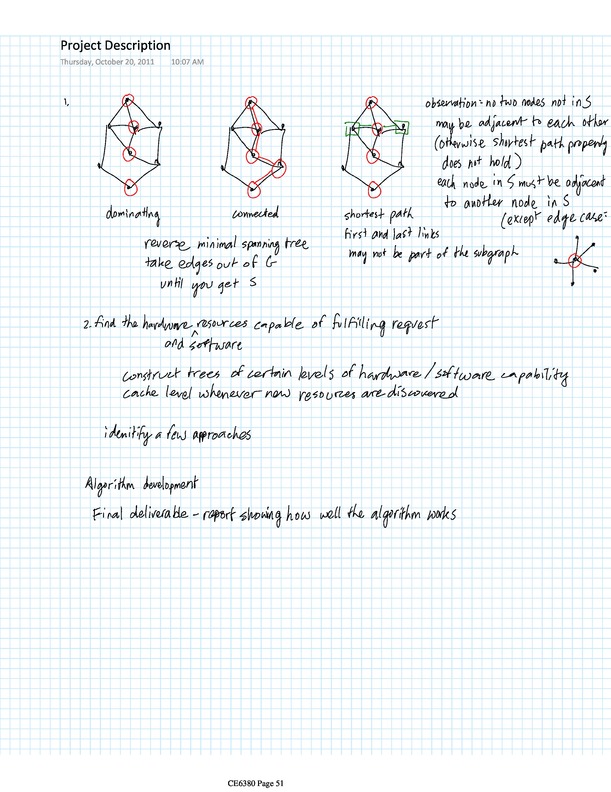 Project Description
Thursday, October 20, 2011 10:07 AM
1.
dominating
connected
shortest path
first and last links
may not be part of the subgraph
observation: no two nodes not in S
may be adjacent to each other
(otherwise shortest path property
does not hold)
each node in S must be adjacent
to another node in S
(except edge case:
reverse minimal spanning tree
take edges out of G
until you get S
2. find the hardware resources capable of fulfilling request
^
and software
construct trees of certain levels of hardware/software capability
cache level whenever new resources are discovered
idenitify a few approaches
Algorithm development
Final deliverable - report showing how well the algorithm works
CE6380 Page 51